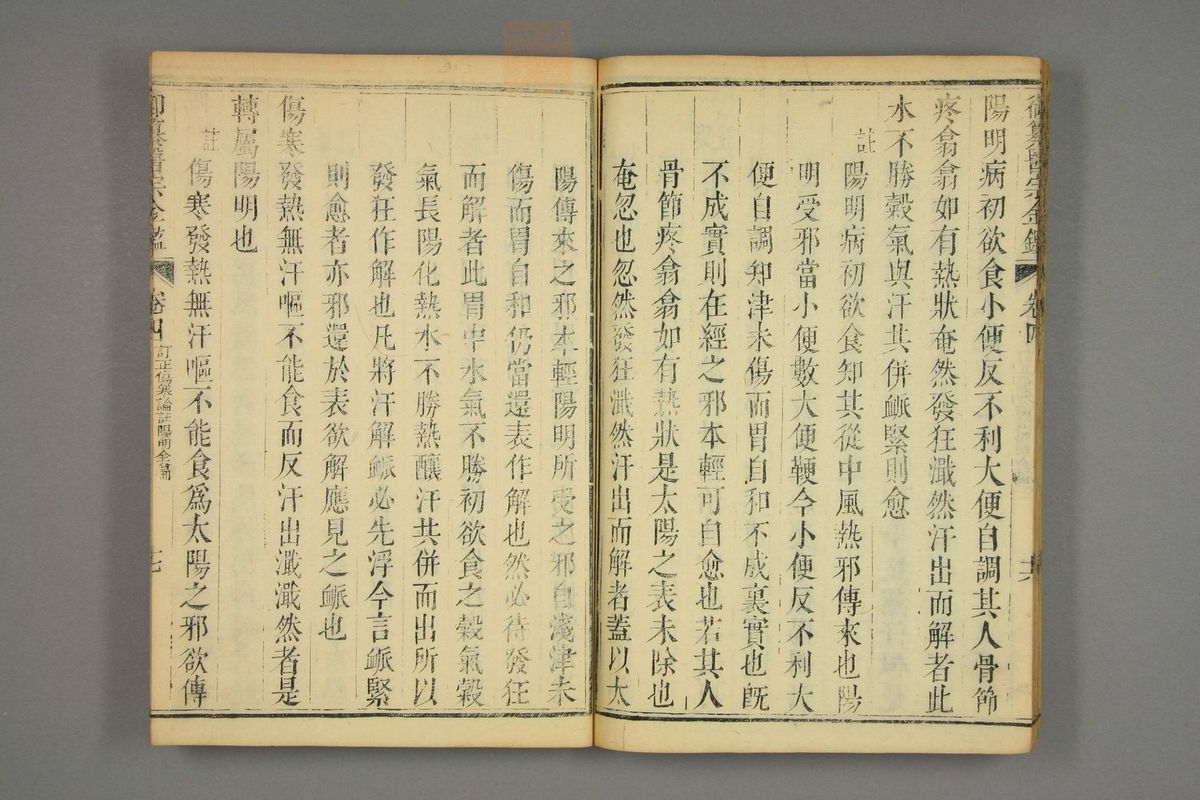 御纂醫宗金鑑 卷四 共
陽明病初欲食小便反不利大便自調其人骨節
疼翕翕如有熱狀奄然發狂濈然汗出而解者此
水不勝穀氣與汗共併脈緊則愈
註 陽明病初欲食知其從中風熱邪傳來也陽
明受邪當小便數大便鞕今小便反不利大
便自調知津未傷而胃自和不成裏實也旣
不成實則在經之邪本輕可自愈也若其人
骨節疼翕翕如有熱狀是太陽之表未除也
奄忽也忽然發狂濈然汗出而解者蓋以太
陽傳來之邪本輕陽明所受之邪自淺津未
傷而胃自和仍當還表作解也然必待發狂
而解者此胃中水氣不勝初欲食之穀氣穀
氣長陽化熱水不勝熱釀汗共併而出所以
發狂作解也凡將汗解脈必先浮今言脈緊
則愈者亦邪還於表欲解應見之脈也
傷寒發熱無汗嘔不能食而反汗出濈濈然者是
轉屬陽明也
註 傷寒發熱無汗嘔不能食爲太陽之邪欲傳
御纂醫宗金鑑 卷四 訂正傷寒論註陽明全篇 七